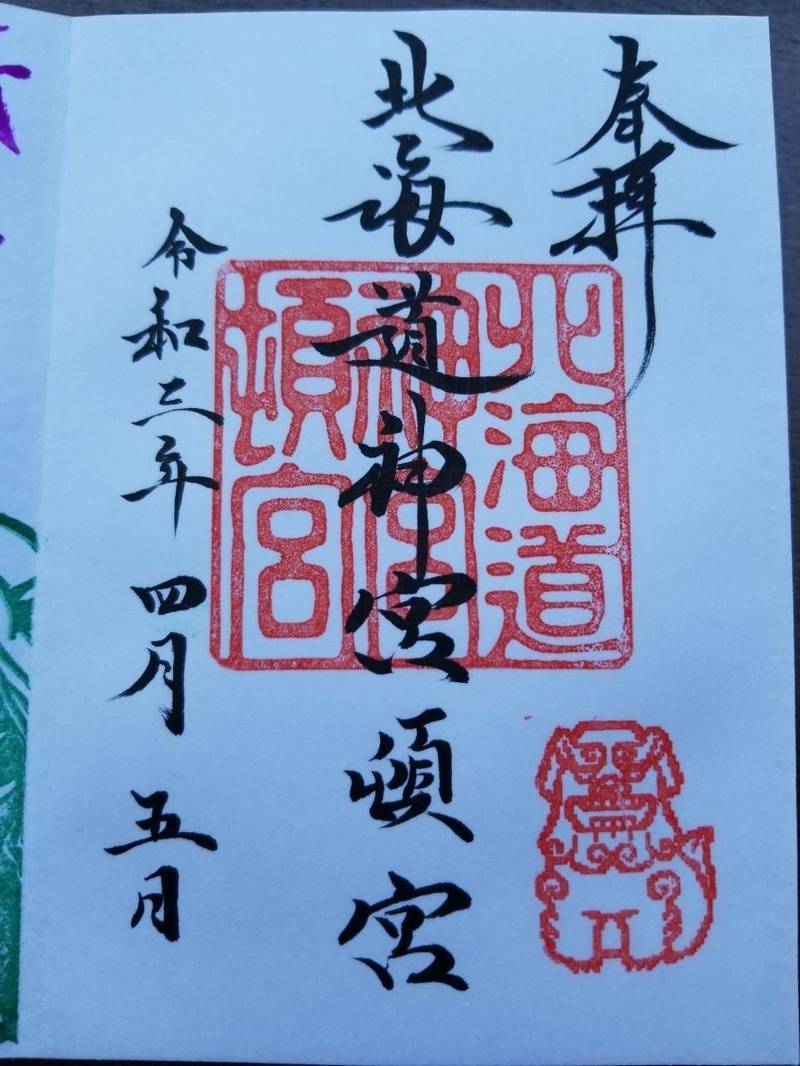 奉拝
北海道神宮頓宮
令和三年 四月 五日
北海道
神宮
頓宮